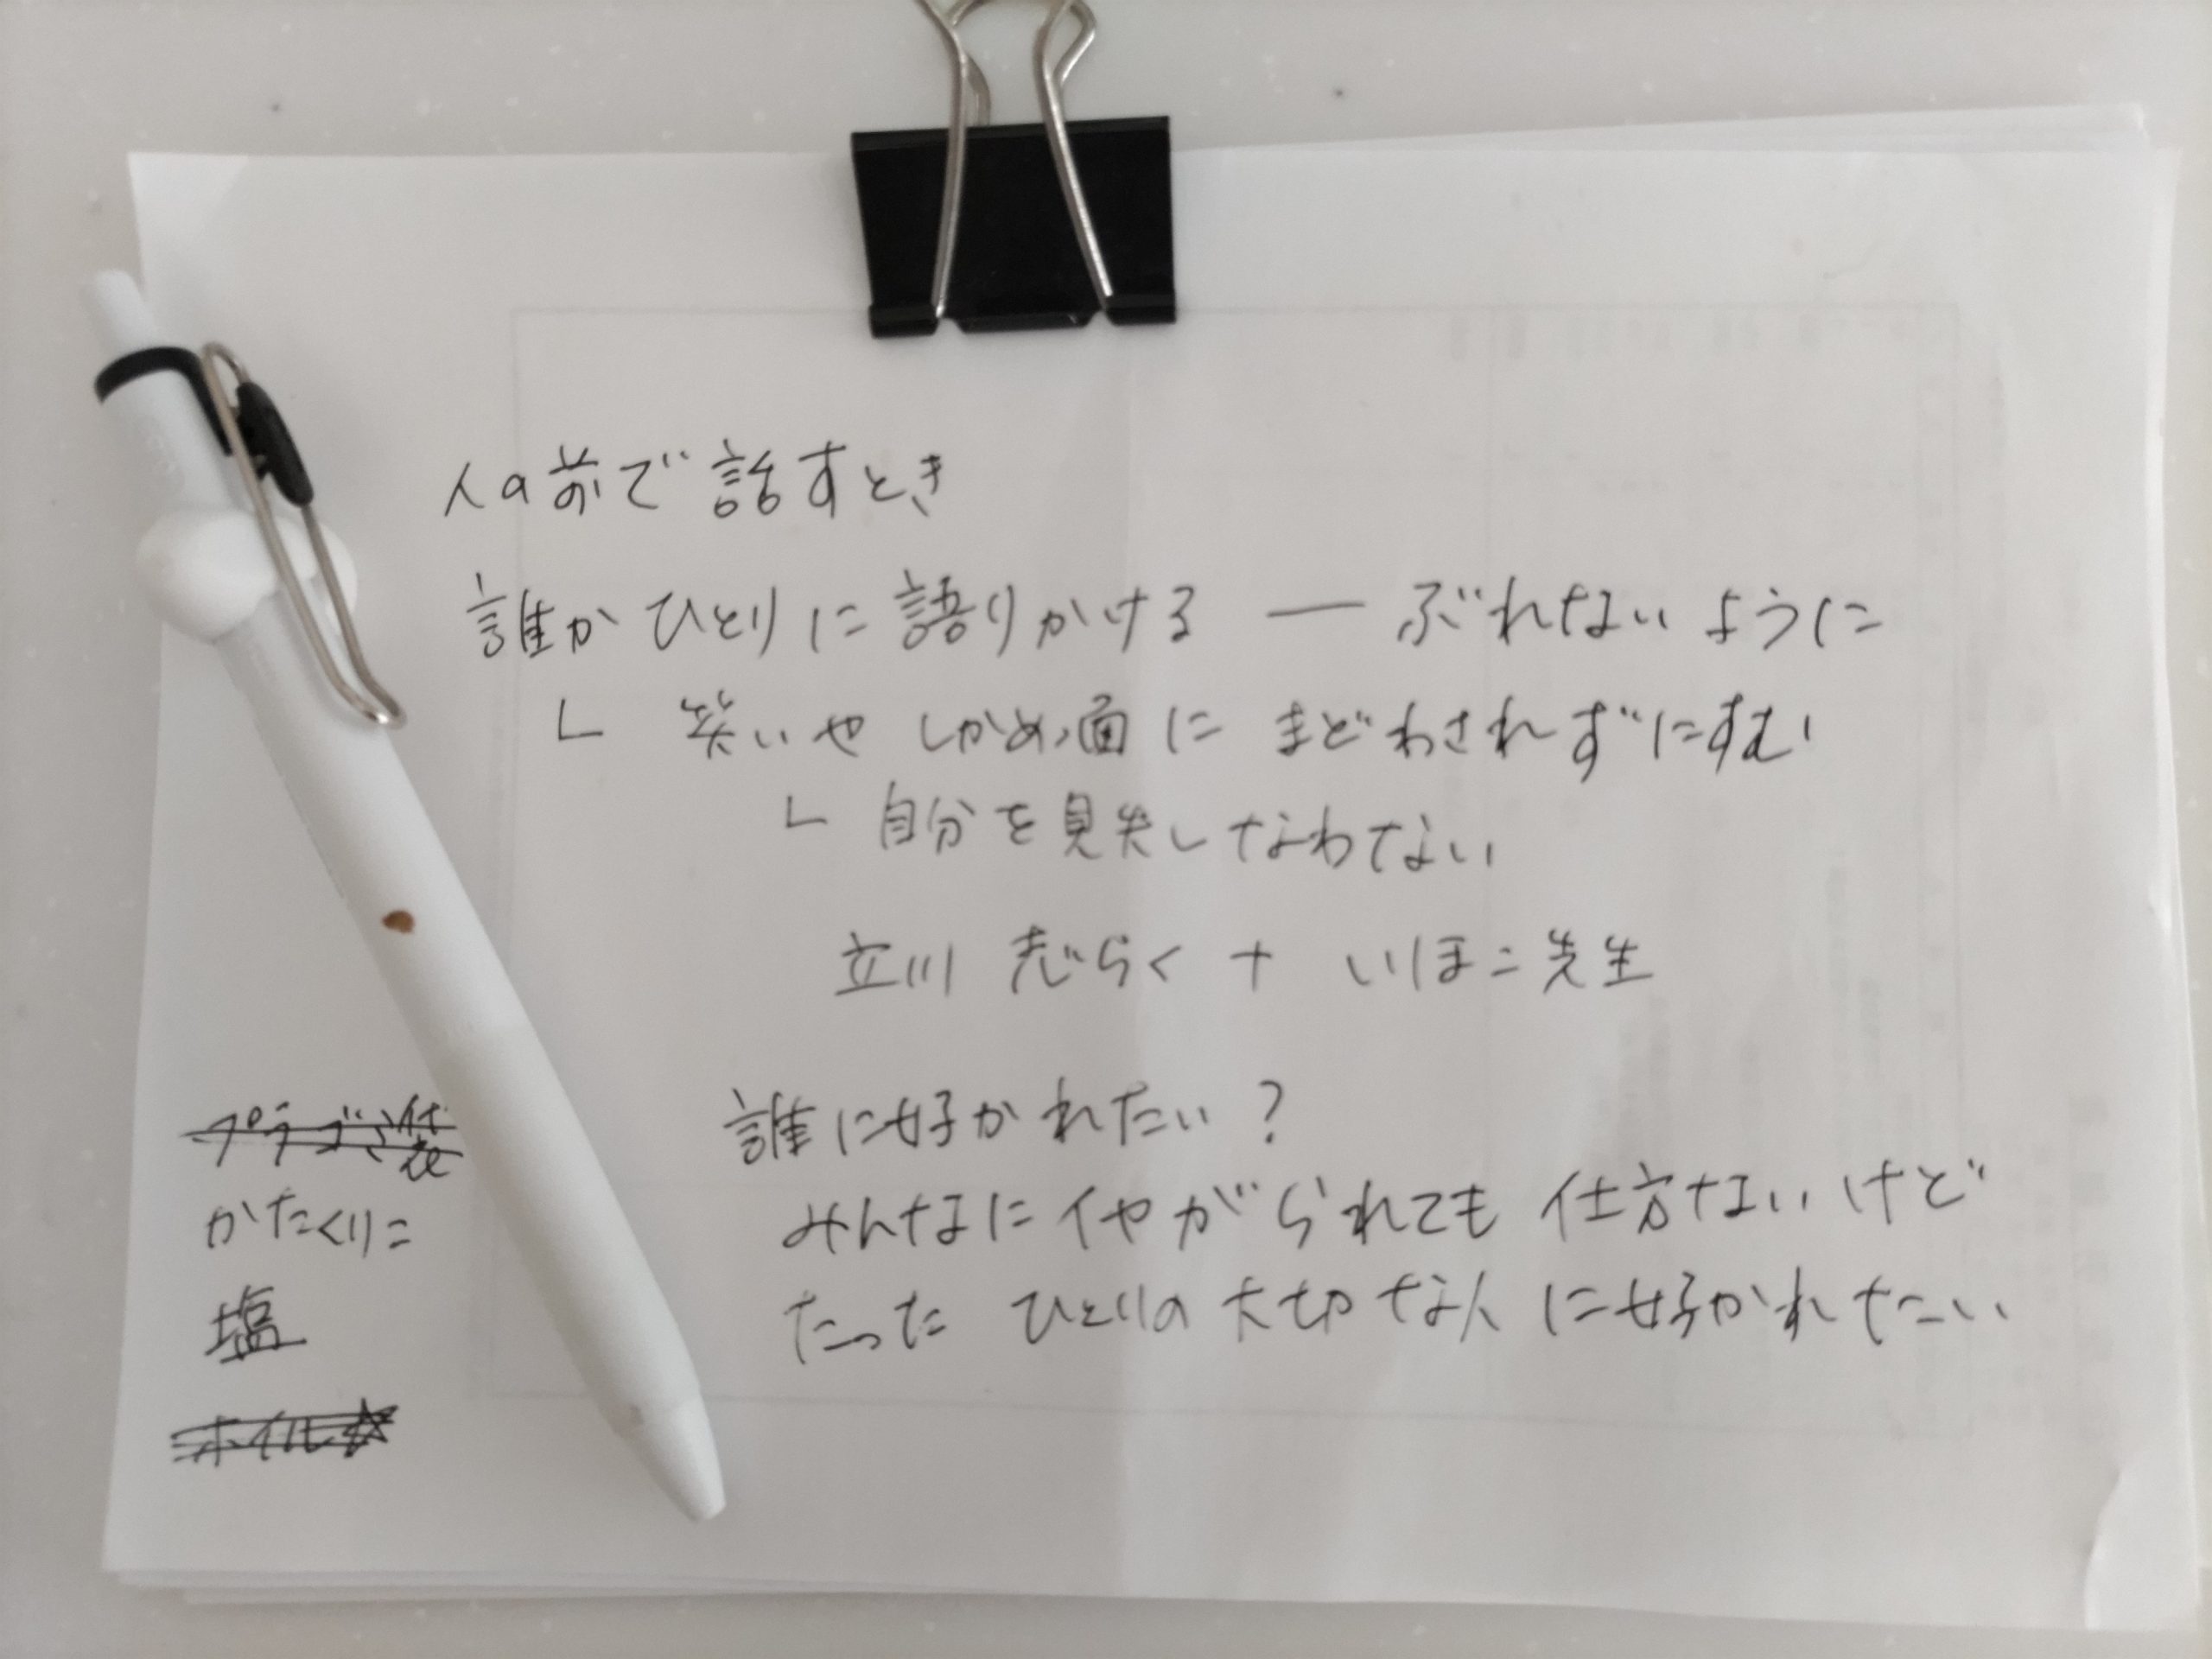 人の前で話すとき
誰かひとりに語りかける ― ぶれないように
└ 笑いや しかめ面に まどわされずにすむ
└ 自分を見失しなわない
立川 志らく + いほこ先生
誰に好かれたい?
みんなにイヤがられても 仕方ないけど
たった ひとりの 大切な人 に好かれたい
プラゴミ袋
かたくりこ
塩
ホイル